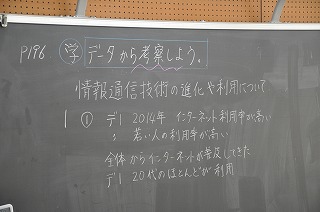 P196 学 データから考察しよう。
情報通信技術の進化や利用について
1 ① デ1 2014年 インターネット利用率が高い
〃 若い人の利用率が高い
全体からインターネットが普及してきた
デ1 20代のほとんどが利用